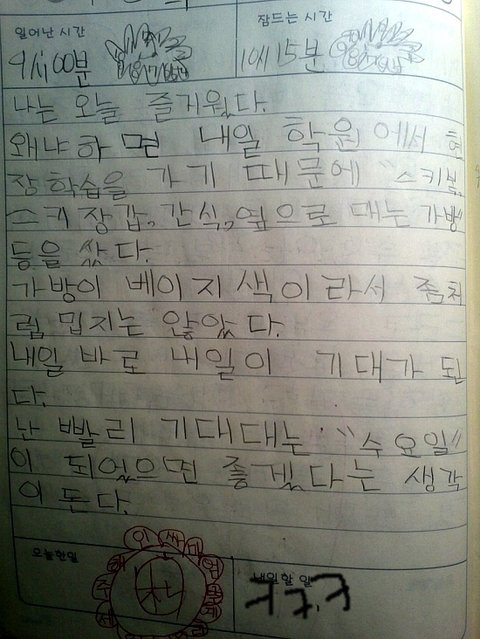 일어난 시간
잠드는 시간
9시 00분
10시 15분
나는 오늘 즐거웠다.
왜냐하면 내일 학원에서 현
장학습을 가기 때문에 "스키복,
스키장갑, 간식, 옆으로 매는 가방"
등을 쌌다.
가방이 베이지색이라서 좀처
럼 밉지는 않았다.
내일 바로 내일이 기대가 된
다.
난 빨리 기대대는 "수요일"
이 되었으면 좋겠다는 생각
이 든다.
오늘한일
내일할 일